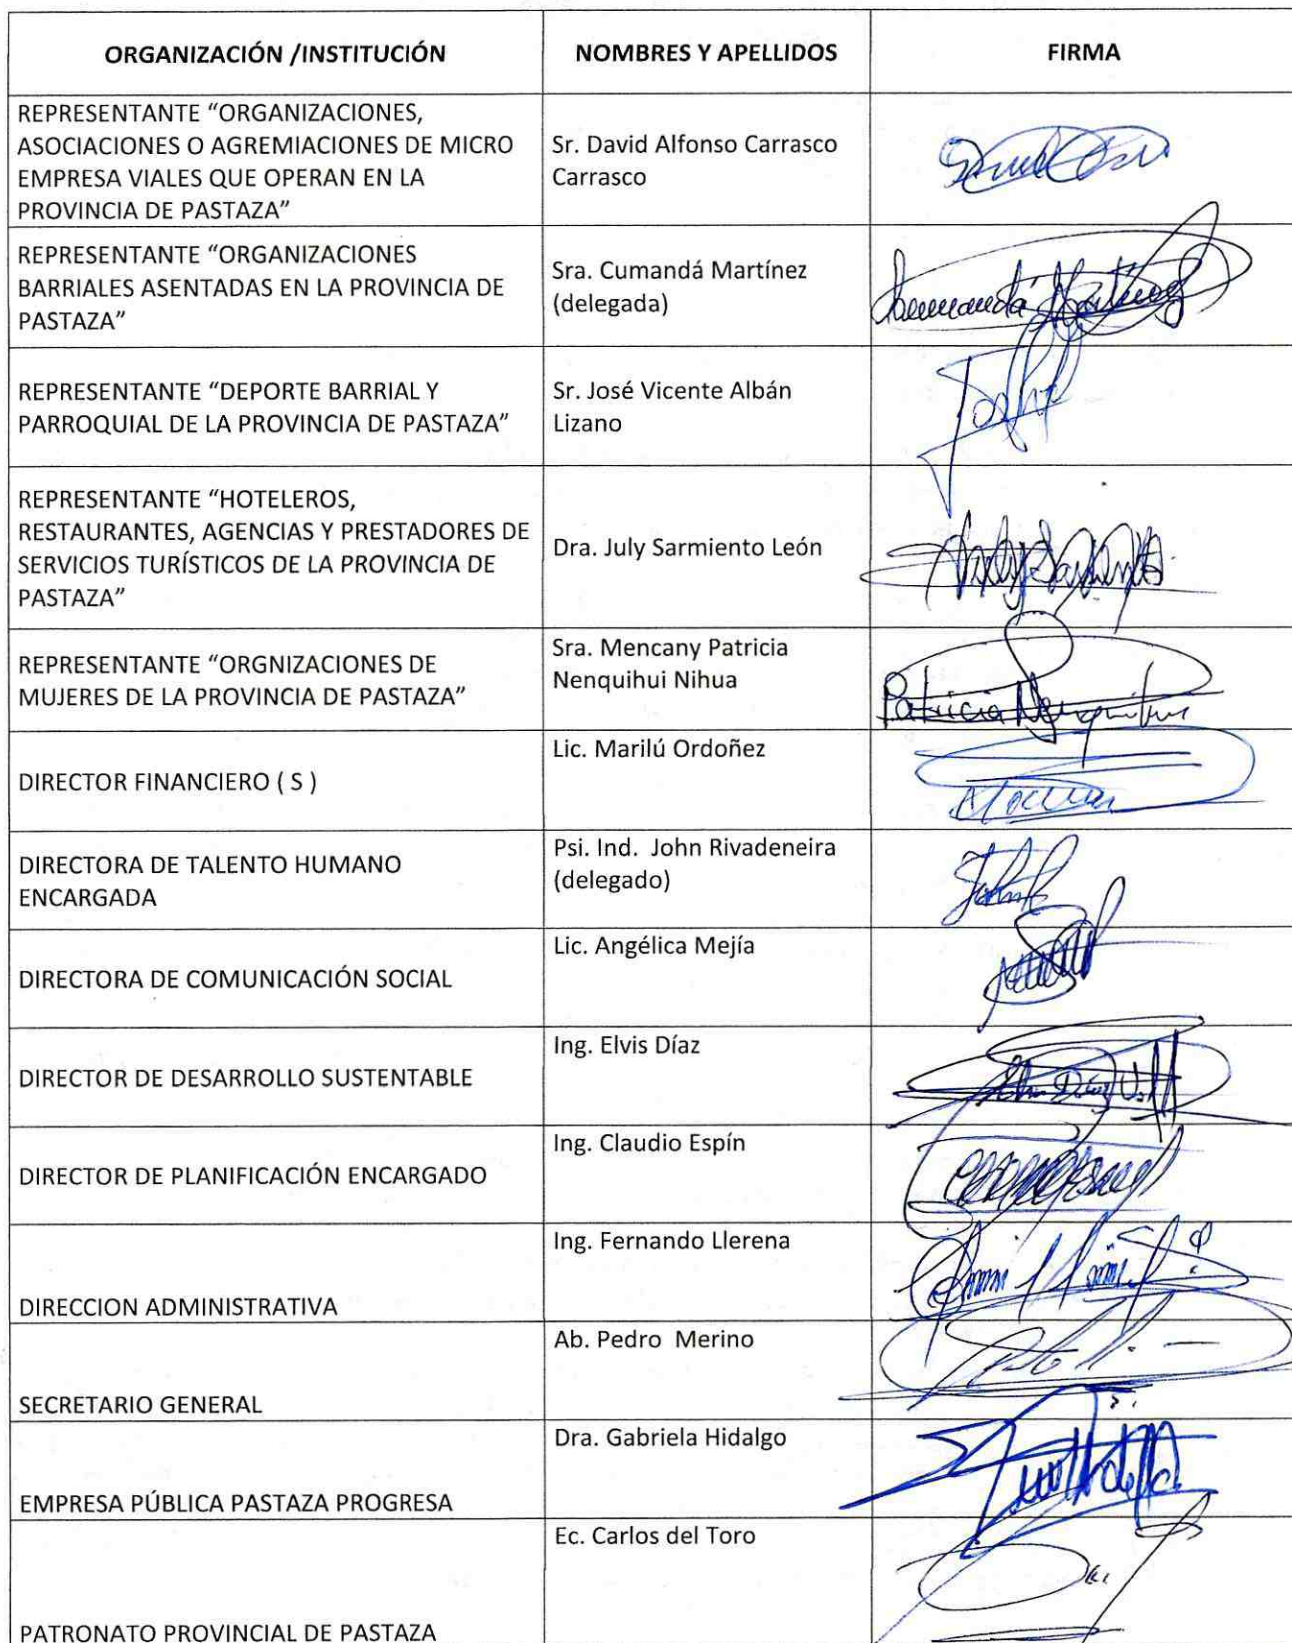 ORGANIZACIÓN /INSTITUCIÓN
NOMBRES Y APELLIDOS
FIRMA
REPRESENTANTE “ORGANIZACIONES,
ASOCIACIONES O AGREMIACIONES DE MICRO
EMPRESA VIALES QUE OPERAN EN LA
PROVINCIA DE PASTAZA”
Sr. David Alfonso Carrasco
Carrasco
REPRESENTANTE “ORGANIZACIONES
BARRIALES ASENTADAS EN LA PROVINCIA DE
PASTAZA”
Sra. Cumandá Martínez
(delegada)
REPRESENTANTE “DEPORTE BARRIAL Y
PARROQUIAL DE LA PROVINCIA DE PASTAZA”
Sr. José Vicente Albán
Lizano
REPRESENTANTE “HOTELEROS,
RESTAURANTES, AGENCIAS Y PRESTADORES DE
SERVICIOS TURÍSTICOS DE LA PROVINCIA DE
PASTAZA”
Dra. July Sarmiento León
REPRESENTANTE “ORGNIZACIONES DE
MUJERES DE LA PROVINCIA DE PASTAZA”
Sra. Mencany Patricia
Nenquihui Nihua
Patricia
DIRECTOR FINANCIERO ( S )
Lic. Marilú Ordoñez
DIRECTORA DE TALENTO HUMANO
ENCARGADA
Psi. Ind. John Rivadeneira
(delegado)
DIRECTORA DE COMUNICACIÓN SOCIAL
Lic. Angélica Mejía
DIRECTOR DE DESARROLLO SUSTENTABLE
Ing. Elvis Díaz
DIRECTOR DE PLANIFICACIÓN ENCARGADO
Ing. Claudio Espín
DIRECCION ADMINISTRATIVA
Ing. Fernando Llerena
SECRETARIO GENERAL
Ab. Pedro Merino
EMPRESA PÚBLICA PASTAZA PROGRESA
Dra. Gabriela Hidalgo
PATRONATO PROVINCIAL DE PASTAZA
Ec. Carlos del Toro